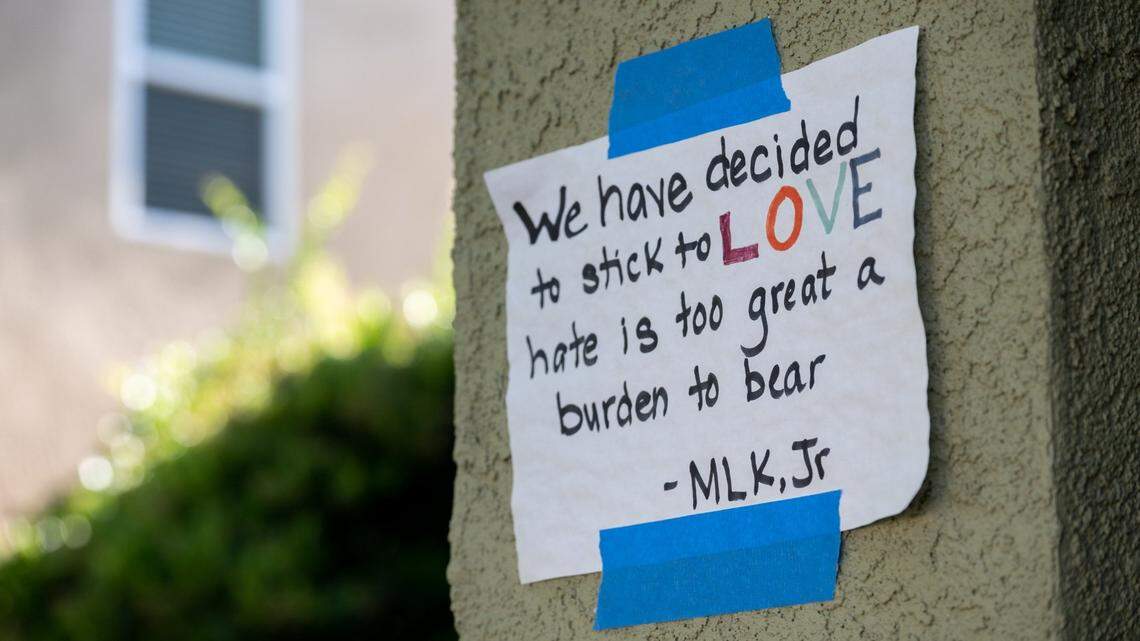 We have decided
to stick to LOVE
hate is too great a
burden to bear
-MLK, Jr